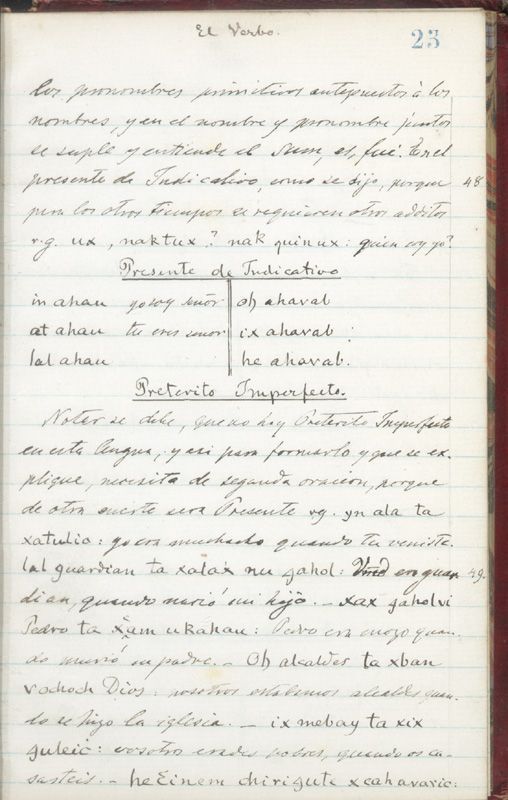 El Verbo.
23
los pronombres primitivos antepuestos à los
nombres, y en el nombre y pronombre juntos
se suple y entiende el Sum, es, fui. En el
presente de Indicativo, como se dijo, porque 48
para los otros tiempos se requieren otros additos
v.g. ux, naktux? nak quin ux: quien soy yo?
Presente de Indicativo
in ahau yo soy señor oh ahavab
at ahau tu eres señor ix ahavab
lal ahau he ahavab.
Preterito Imperfecto.
Notar se debe, que no hay Preterito Imperfecto
en esta lengua, y asi para formarlo y que se ex-
plique, necesita de segunda oracion, porque
de otra suerte sera Presente vg. yn ala ta
xatulic: yo era muchacho quando tu veniste.
lal guardian ta xalax nu gahol: Vmd era guar- 49.
dian, quando nació mi hijo. - xax gaholvi
Pedro ta xcam ukahau: Pedro era mozo quan-
do murió su padre. - Oh alcaldes ta xban
vochoch Dios: nosotros estabamos alcaldes quan-
do se hizo la iglesia. - ix mebay ta xix
guleic: vosotros erades pobres, quando os ca-
sasteis. - he Einem chirigute xcahavaric: